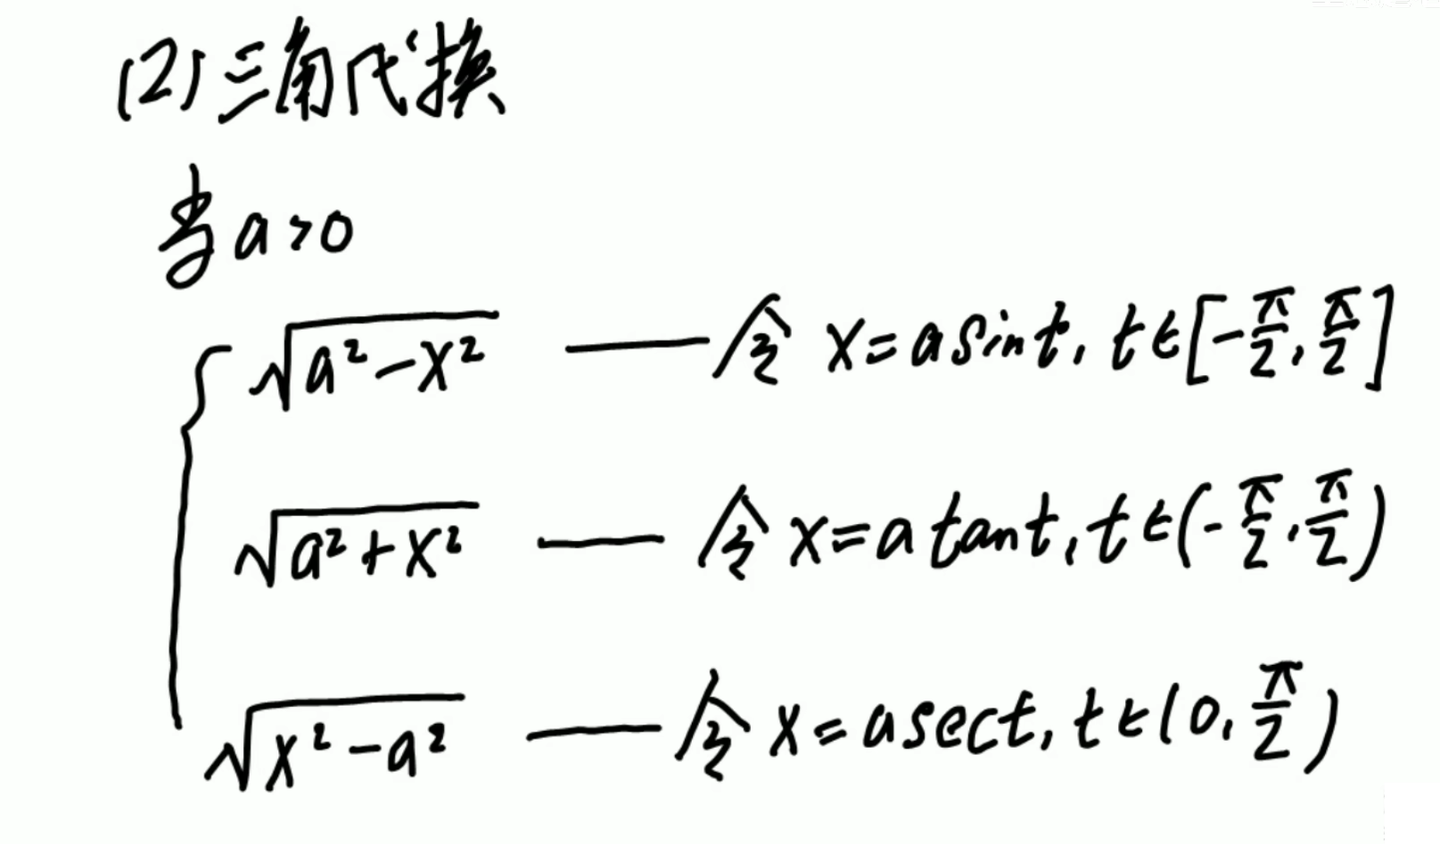 (2) 三角代换
当 a>0
√(a²-x²) —— 令 x=a sint, t∈[-π/2, π/2]
√(a²+x²) —— 令 x=a tant, t∈(-π/2, π/2)
√(x²-a²) —— 令 x=a sect, t∈(0, π/2)